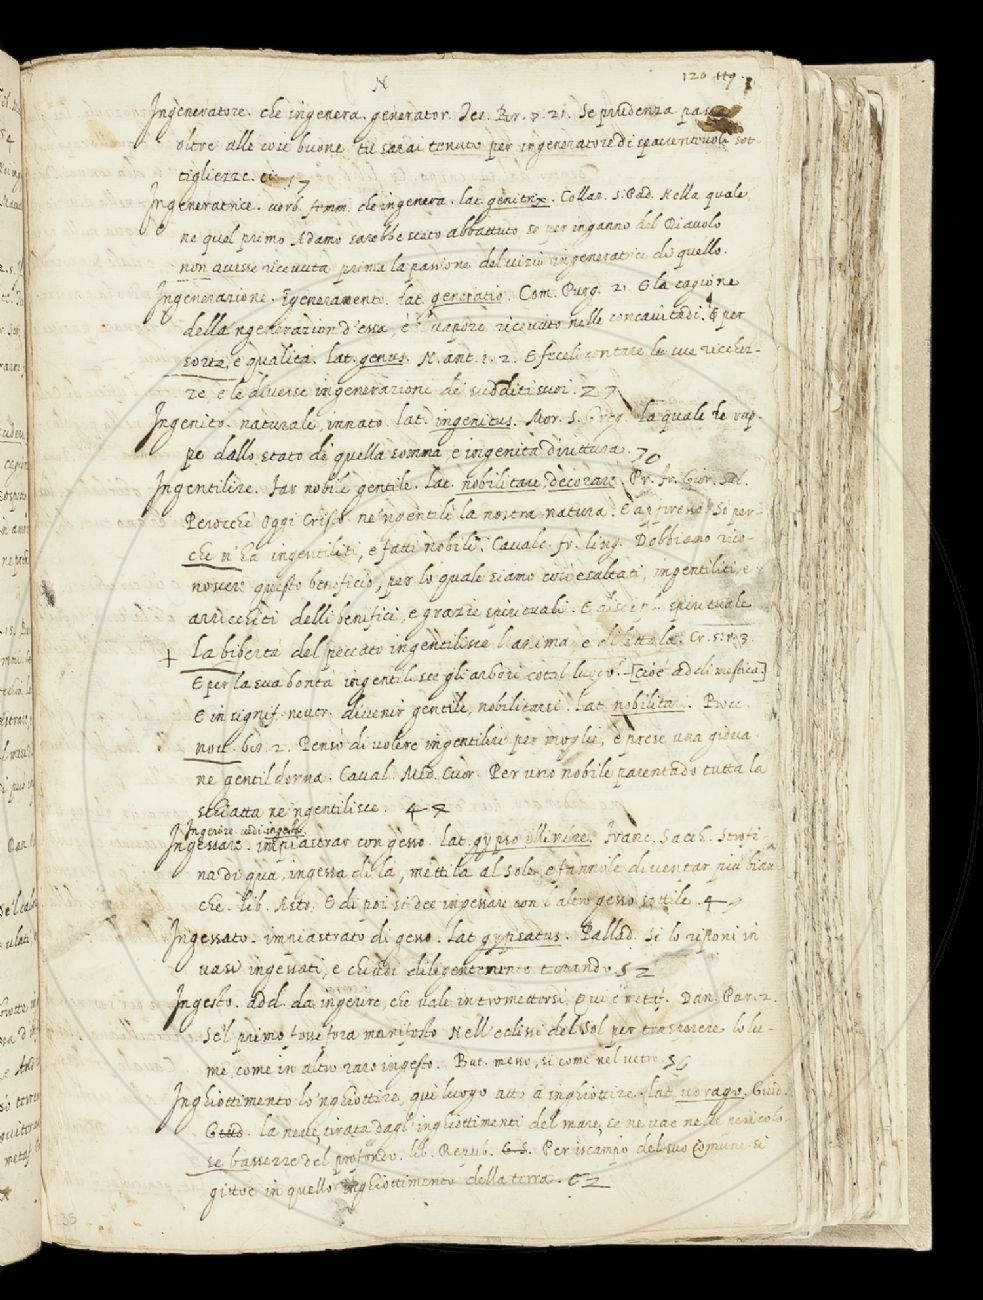 N
120 119
Ingeneratore. che ingenera. generator. Tes. Br. 7. 21. Se prudenza passa
oltre alle cose buone tu sarai tenuto per ingeneratore di spaventevole sot-
tigliezze. 17
Ingeneratrice. verb. femm. che ingenera. lat. genitrix. Collaz. S. Pad. Nella quale
ne quel primo Adamo sarebbe stato abbattuto, se per inganno del Diavolo
non avesse ricevuta prima la passione del vizio ingeneratrice di quello.
Ingenerazione. Igeneramento. lat. generatio. Com. Purg. 21. E la cagione
della ngenerazion d'essa, è vapore ricevuto nelle concavitadi. E per
sorta, e qualità. lat. genus. N. ant. 1. 2. E feceli contare le sue ricchez-
ze, e le diverse ingenerazione de sudditi suoi. 27
Ingenito. naturale, innato. lat. ingenitus. Mor. S. Greg. la quale le rup-
pe dallo stato di quella somma e ingenita dirittura. 70
Ingentilire. far nobile gentile. lat. nobilitare, decorare. Pr. fr. Gior. Sal.
Perocchè Oggi Cristo ne 'ngentilì la nostra natura. E appresso. Si per-
che n'ha ingentiliti, e fatti nobili. Cavalc. fr. ling. Dobbiamo rico-
noscere questo beneficio, per lo quale siamo così esaltati, ingentiliti, e
aricchiti delli benifici, e grazie spirituali. E spirituale
+ La biberta del peccato ingentilisce l'anima, e Cr. 5. 1. 3.
E per la sua bontà ingentilisce gli arbori cotal luogo. [cioè addimestica]
E in signif. neutr. divenir gentile, nobilitarsi. lat. nobilitari. Bocc.
nov. 2. Pensò di volere ingentilire per moglie, e prese una giova-
ne gentil donna. Caval. Med. Cuor. Per uno nobile parentado tutta la
schiatta ne 'ngentilisce. 47
Ingerire. vedi ingesto
Ingessare. impiastrar con gesso. lat. gypso illinire. Franc. Sacch. Strofi-
na di qua, ingessa di là, mettila al sole, e fannole diventar più bian-
che. lib. Astr. E di poi si dee ingessare con l'altro gesso sottile. 47
Ingessato. impiastrato di gesso. lat. gypsatus. Pallad. Si lo riponi in
vasi ingessati, e chiudi diligentemente turando. 52
Ingesto. add. da ingerire, che vale intromettersi, qui è metaf. Dan. Par. 2.
Se'l primo fosse fora manifesto Nell'eclissi del Sol per trasparere lo lu-
me, come in altro raro ingesto. But. messo, sì come nel vetro. 56
Inghiottimento lo 'nghiottire, qui luogo atto a inghiottire. lat. vorago. Guid.
Giud. la neve tirata dagl'inghiottimenti del mare, se ne vae nelle pericolo-
se bassezze del profondo. lib. Repub. G. S. Per iscampo del suo Comune si
gittoe in quello inghiottimento della terra. 62
235